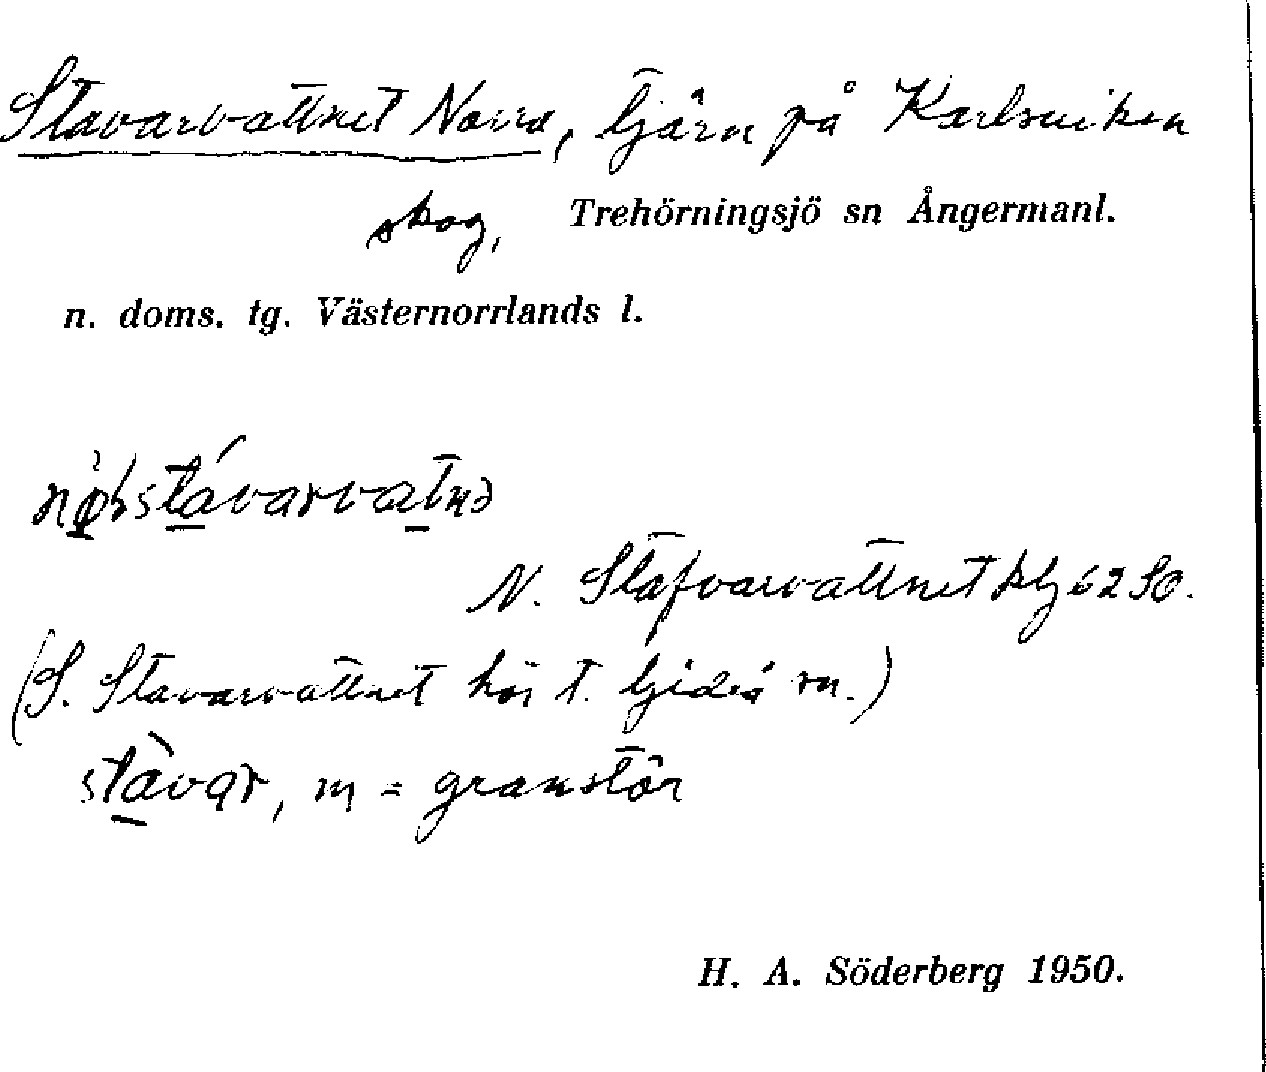 Stavarvattnet Norra, tjärn på Karlsviken
skog, Trehörningsjö sn Ångermanl.
n. doms. tg. Västernorrlands l.
N. Stafvarvattnet kbl 62 SO.
(S. Stavarvattnet hör t. Gideå sn.)
stàvar, m = granstör
H. A. Söderberg 1950.